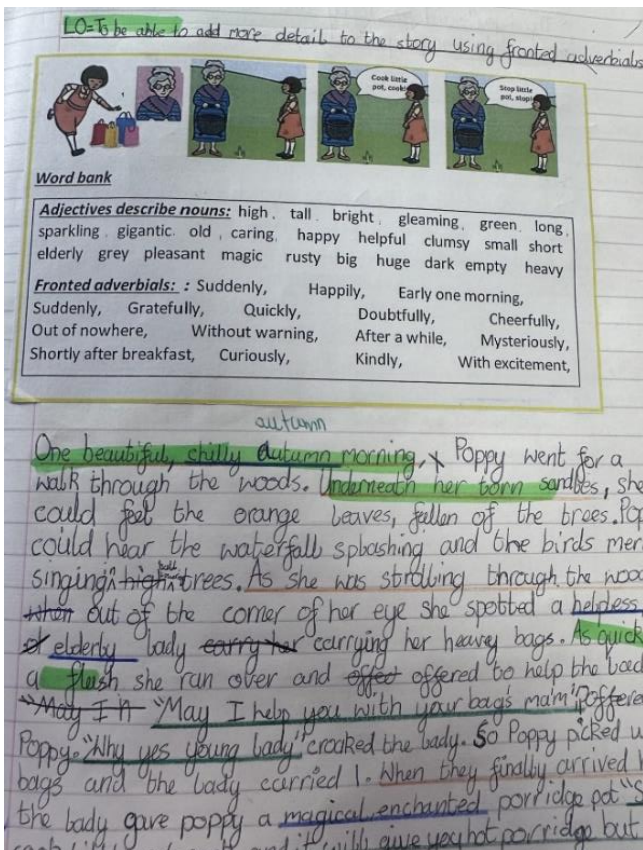 LO=To be able to add more detail to the story using fronted adverbials
Cook little
pot, cook!
Stop little
pot, stop!
Word bank
Adjectives describe nouns: high, tall, bright, gleaming, green, long,
sparkling, gigantic, old, caring, happy helpful clumsy small short
elderly grey pleasant magic rusty big huge dark empty heavy
Fronted adverbials: : Suddenly, Happily, Early one morning,
Suddenly, Gratefully, Quickly, Doubtfully, Cheerfully,
Out of nowhere, Without warning, After a while, Mysteriously,
Shortly after breakfast, Curiously, Kindly, With excitement,
autumn
One beautiful, chilly autumn morning, Poppy went for a
walk through the woods. Underneath her torn sandles, she
could feel the orange leaves, fallen of the trees.
could hear the waterfall splashing and the birds
singing high tall trees. As she was strolling through the
when out of the corner of her eye she spotted a helpless
elderly lady carry her carrying her heavy bags. As
a flash she ran over and offered to help the
"May I "May I help you with your bags mam"
Poppy. "Why yes young lady" croaked the lady. So Poppy picked
bags and the lady carried 1. When they finally arrived
the lady gave poppy a magical, enchanted porridge pot
and it will give you hot porridge but